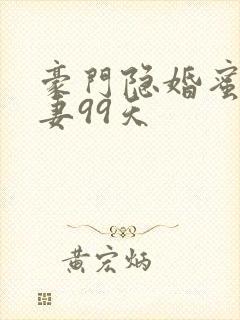 豪門隐婚蜜
妻99天
黄宏炳